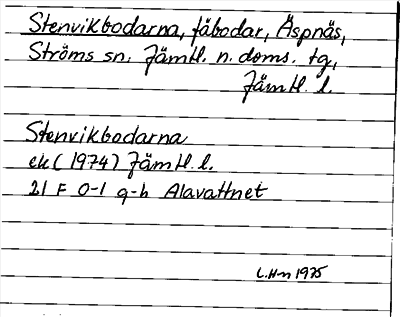 Stenvikbodarna, fäbodar, Äspnäs,
Ströms sn. Jämtl. n. doms. tg,
Jämtl. l.
Stenvikbodarna
ek (1974) Jämtl. l.
21 F 0-1 g-h Alavattnet
L.H-n 1975